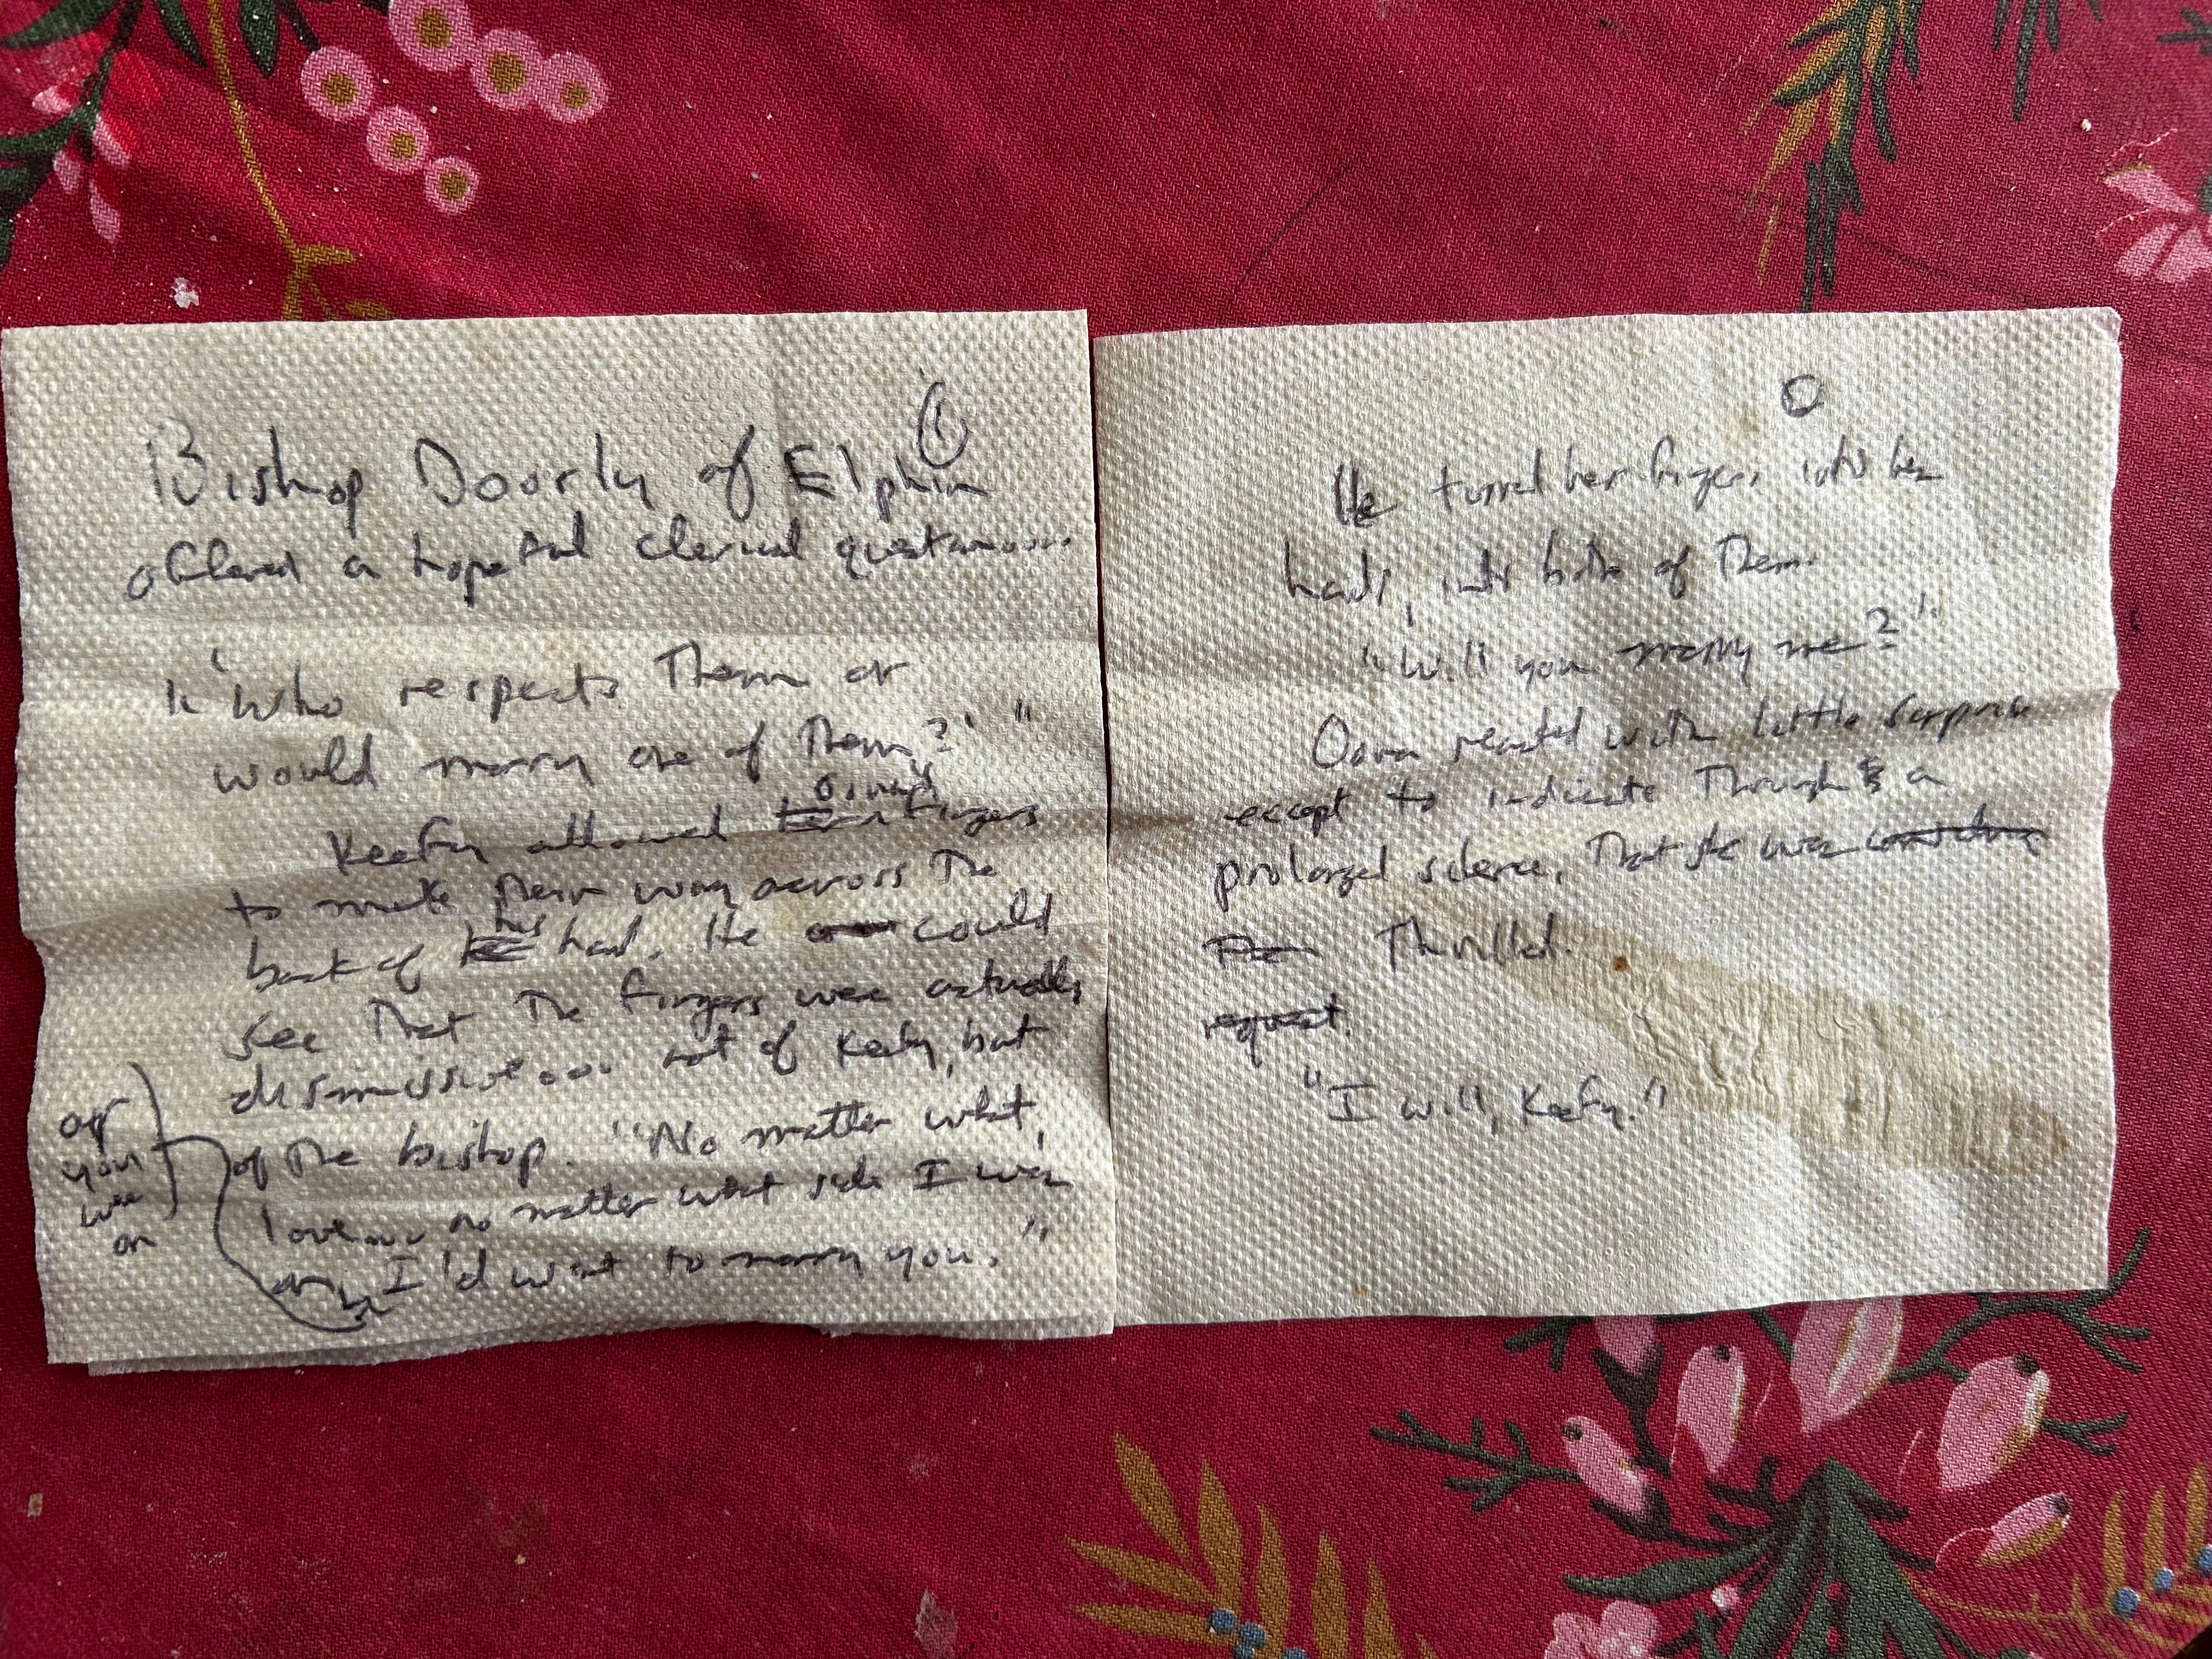 ①
Bishop Doorly of Elphin
offered a hopeful clerical
"'Who respects them or
would marry one of them?'"
Keefy allowed Oona's fingers
to make their way across the
back of his hand. He could
see that the fingers were actually
dismissive... not of Keefy, but
of the bishop. "No matter what,
love... no matter what side I was
on, I'd want to marry you."
or
you
were
on
He turned her fingers into his
hands, into both of them.
"Will you marry me?"
Oona reacted with little surprise
except to indicate through a
prolonged silence, that she was
Thrilled.
request.
"I will, Keefy."